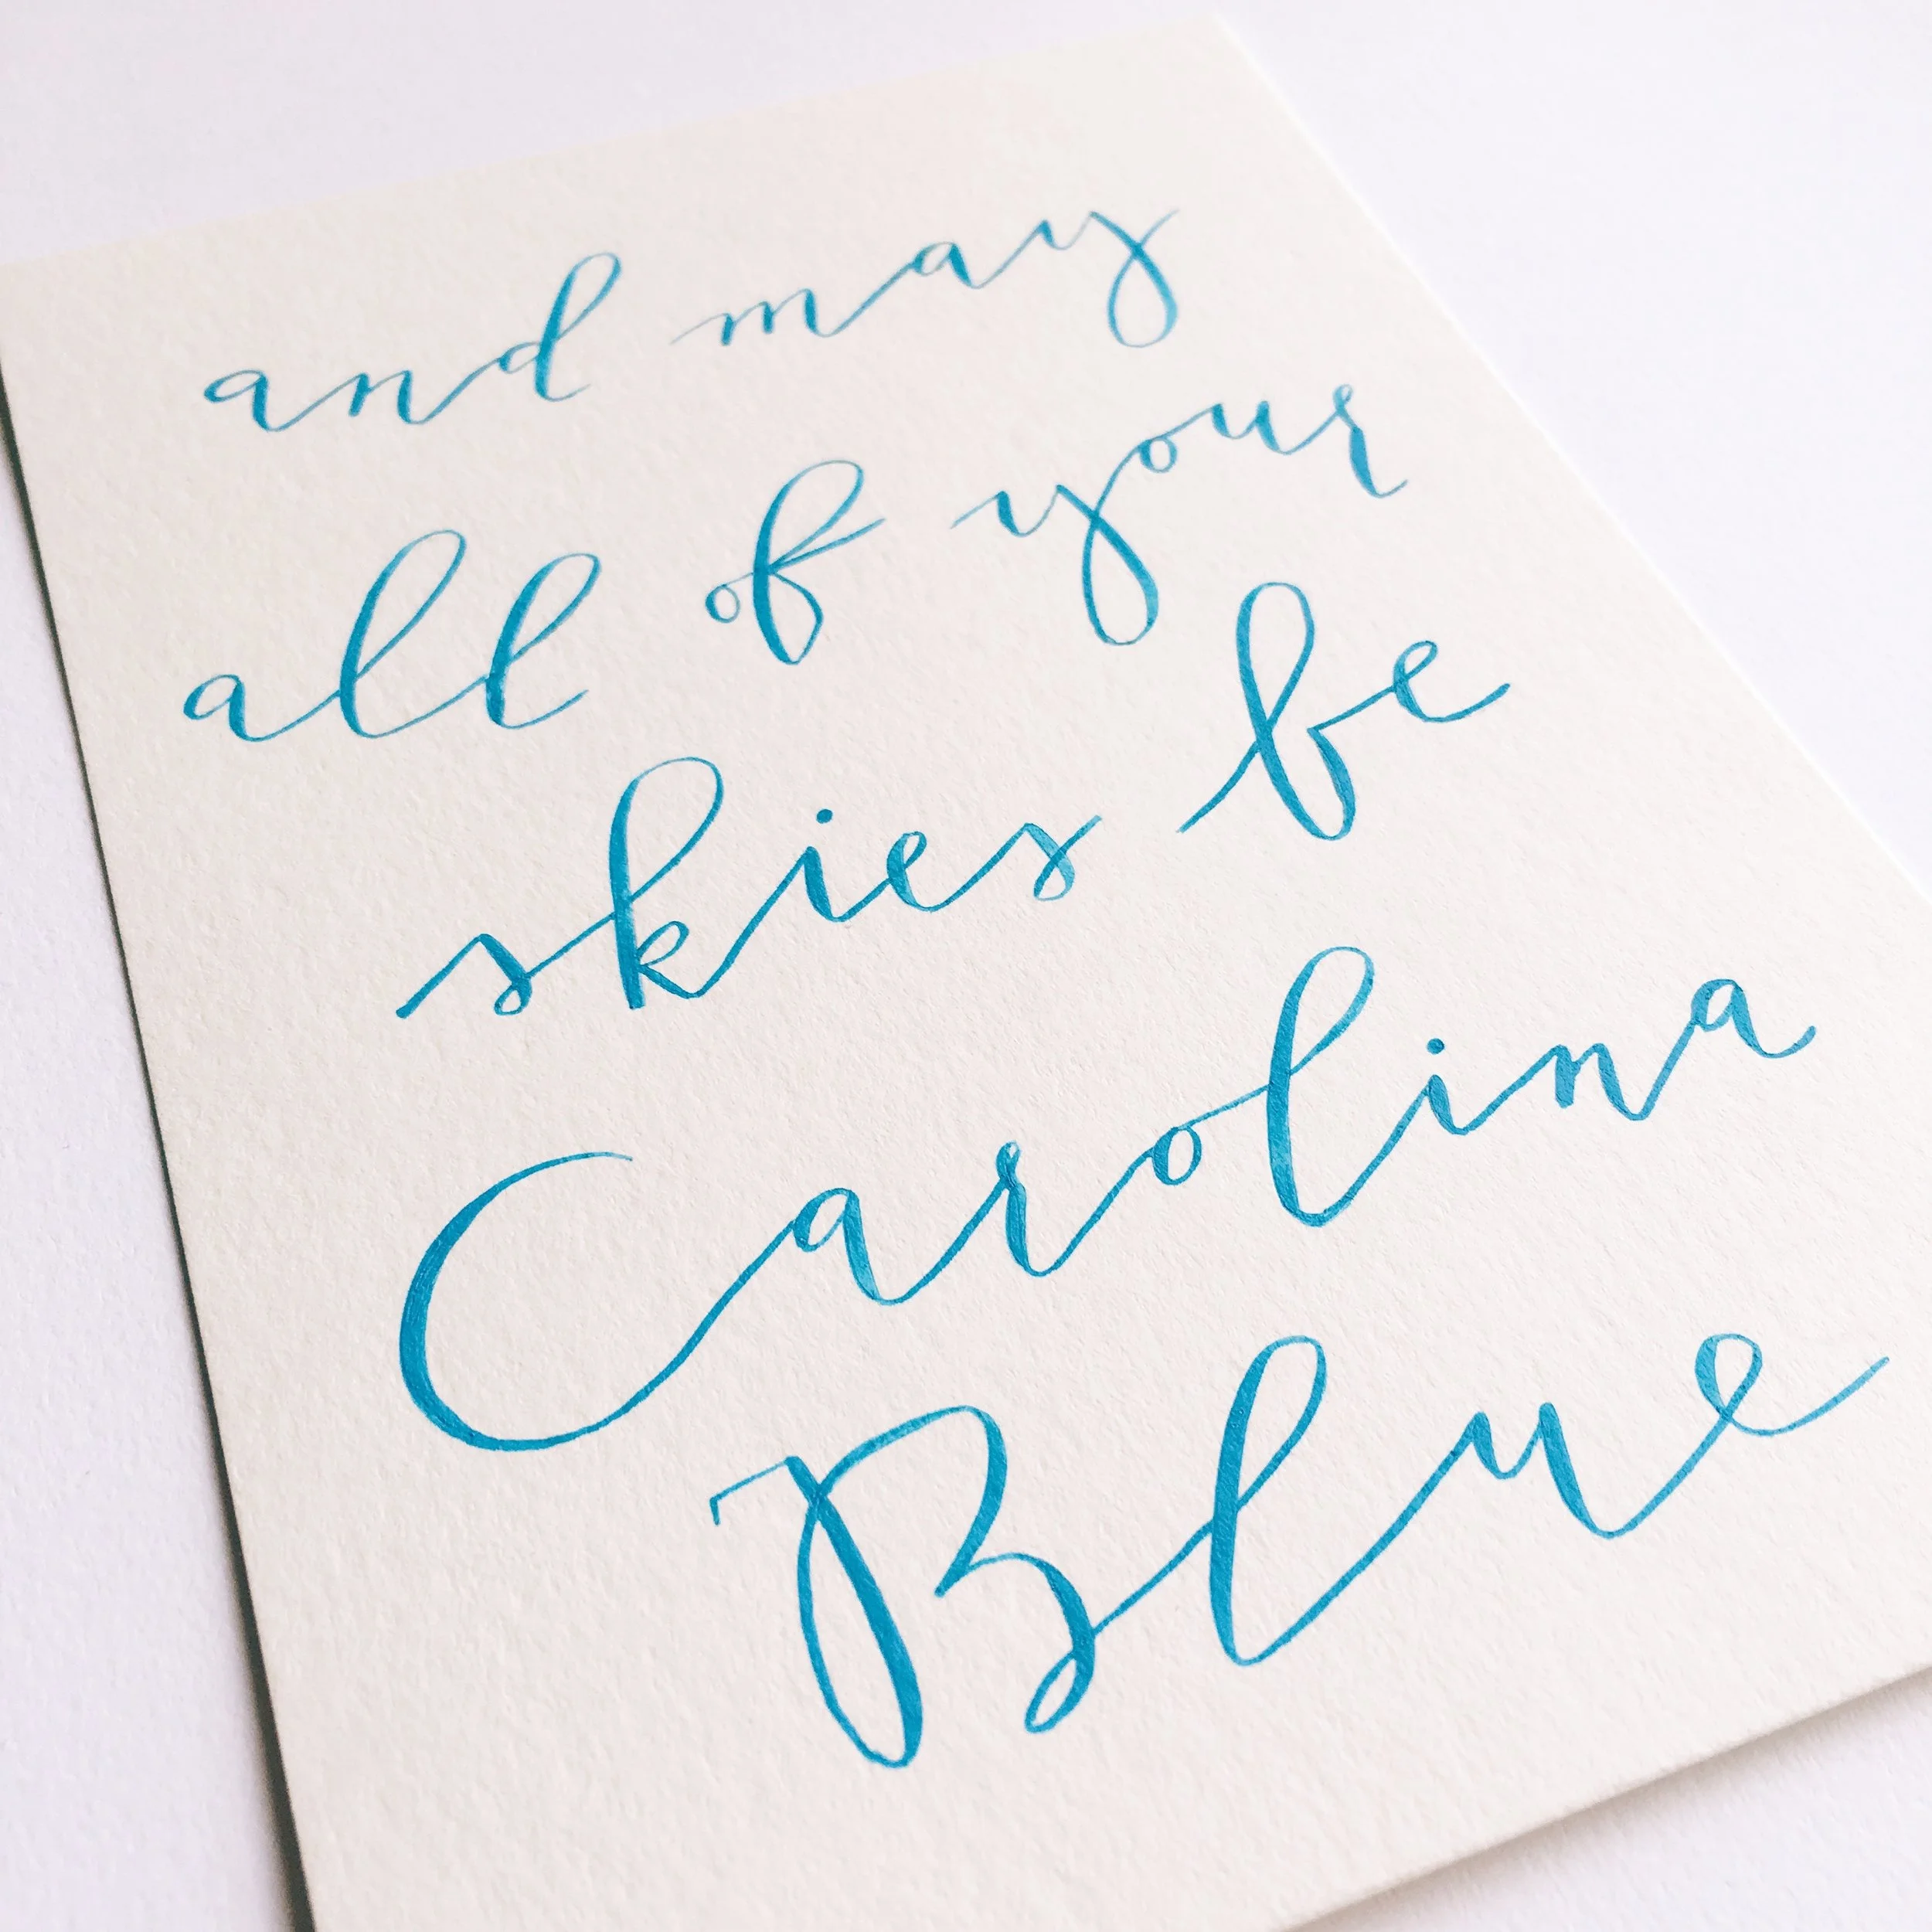 and may
all of your
skies be
Carolina
Blue